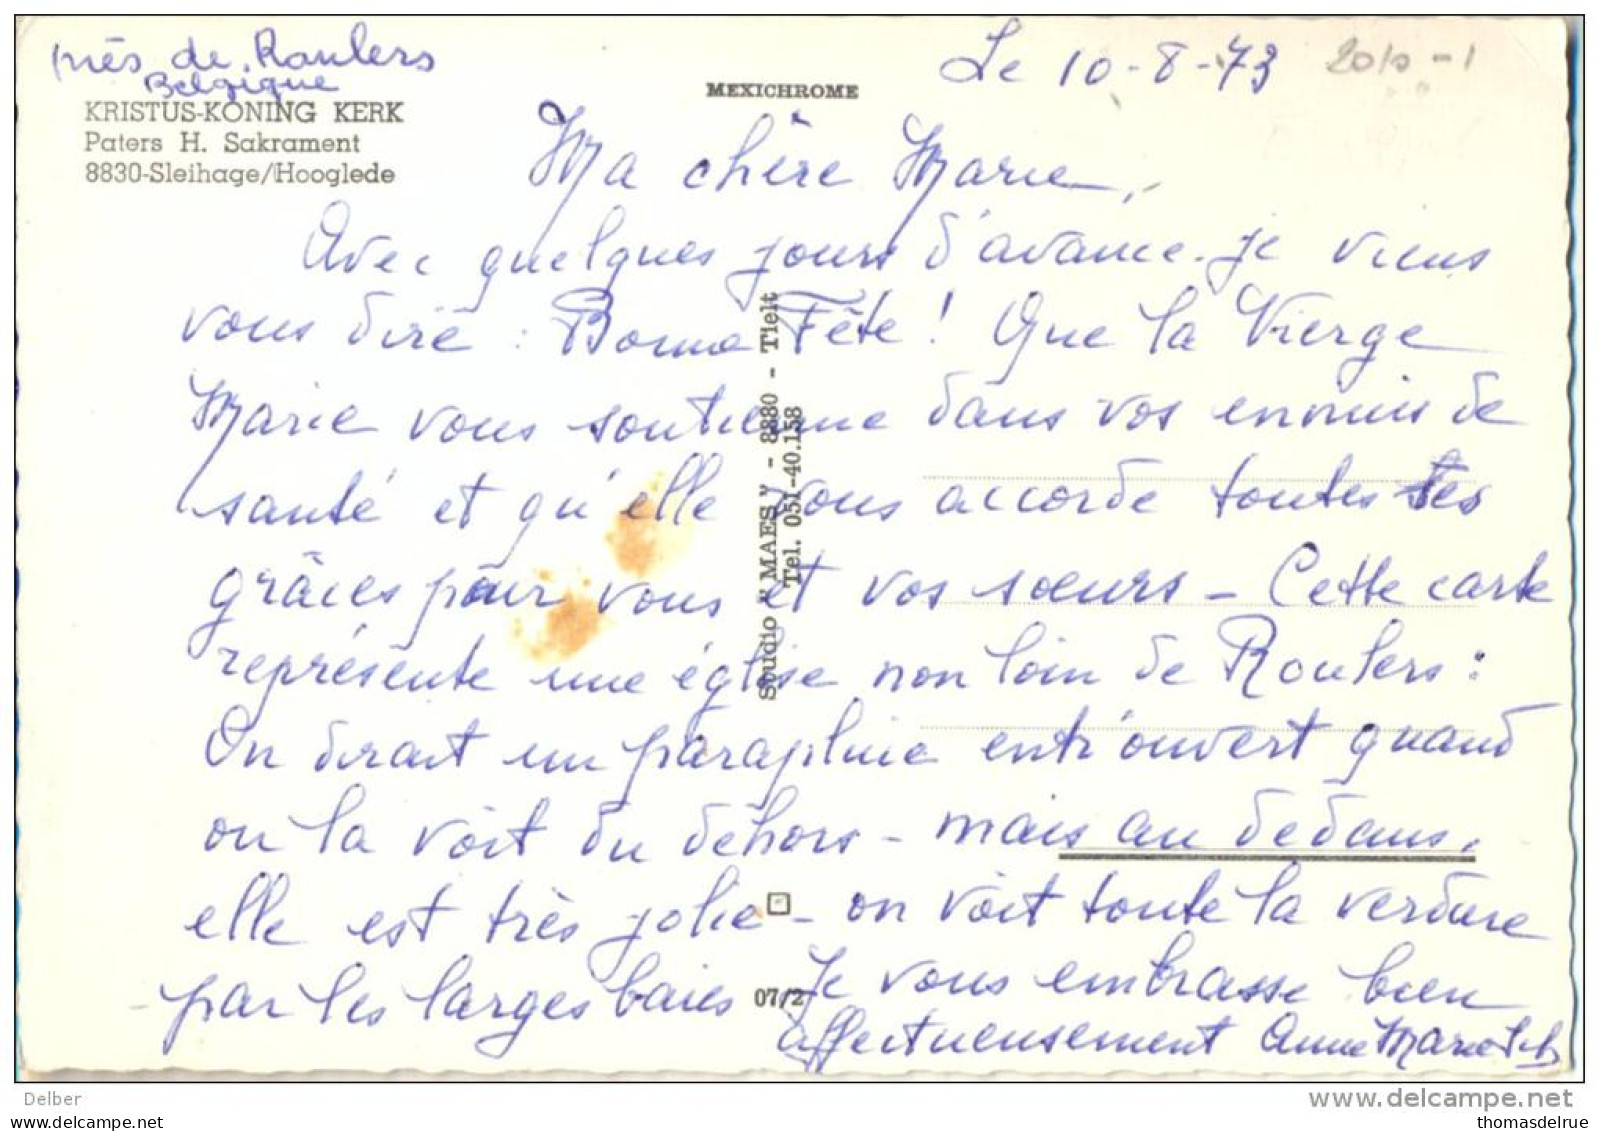 près de Roulers
Belgique
Le 10-8-73
2010-1
MEXICHROME
KRISTUS-KONING KERK
Paters H. Sakrament
8830-Sleihage/Hooglede
Ma chère Marie,
Avec quelques jours d'avance je viens
vous dire : Bonne Fête ! Que la Vierge
Marie vous soutienne dans vos ennuis de
santé et qu'elle vous accorde toutes ses
grâces pour vous et vos soeurs - Cette carte
représente une église non loin de Roulers :
On dirait un parapluie entr'ouvert quand
on la voit du dehors - mais au dedans,
elle est très jolie - on voit toute la verdure
par les larges baies Je vous embrasse bien
affectueusement Anne Marie
Studio "MAES" - 8880 - Tielt
Tel. 051-40.158
07/2
Delber
www.delcampe.net
first come, first served
thomasdelrue